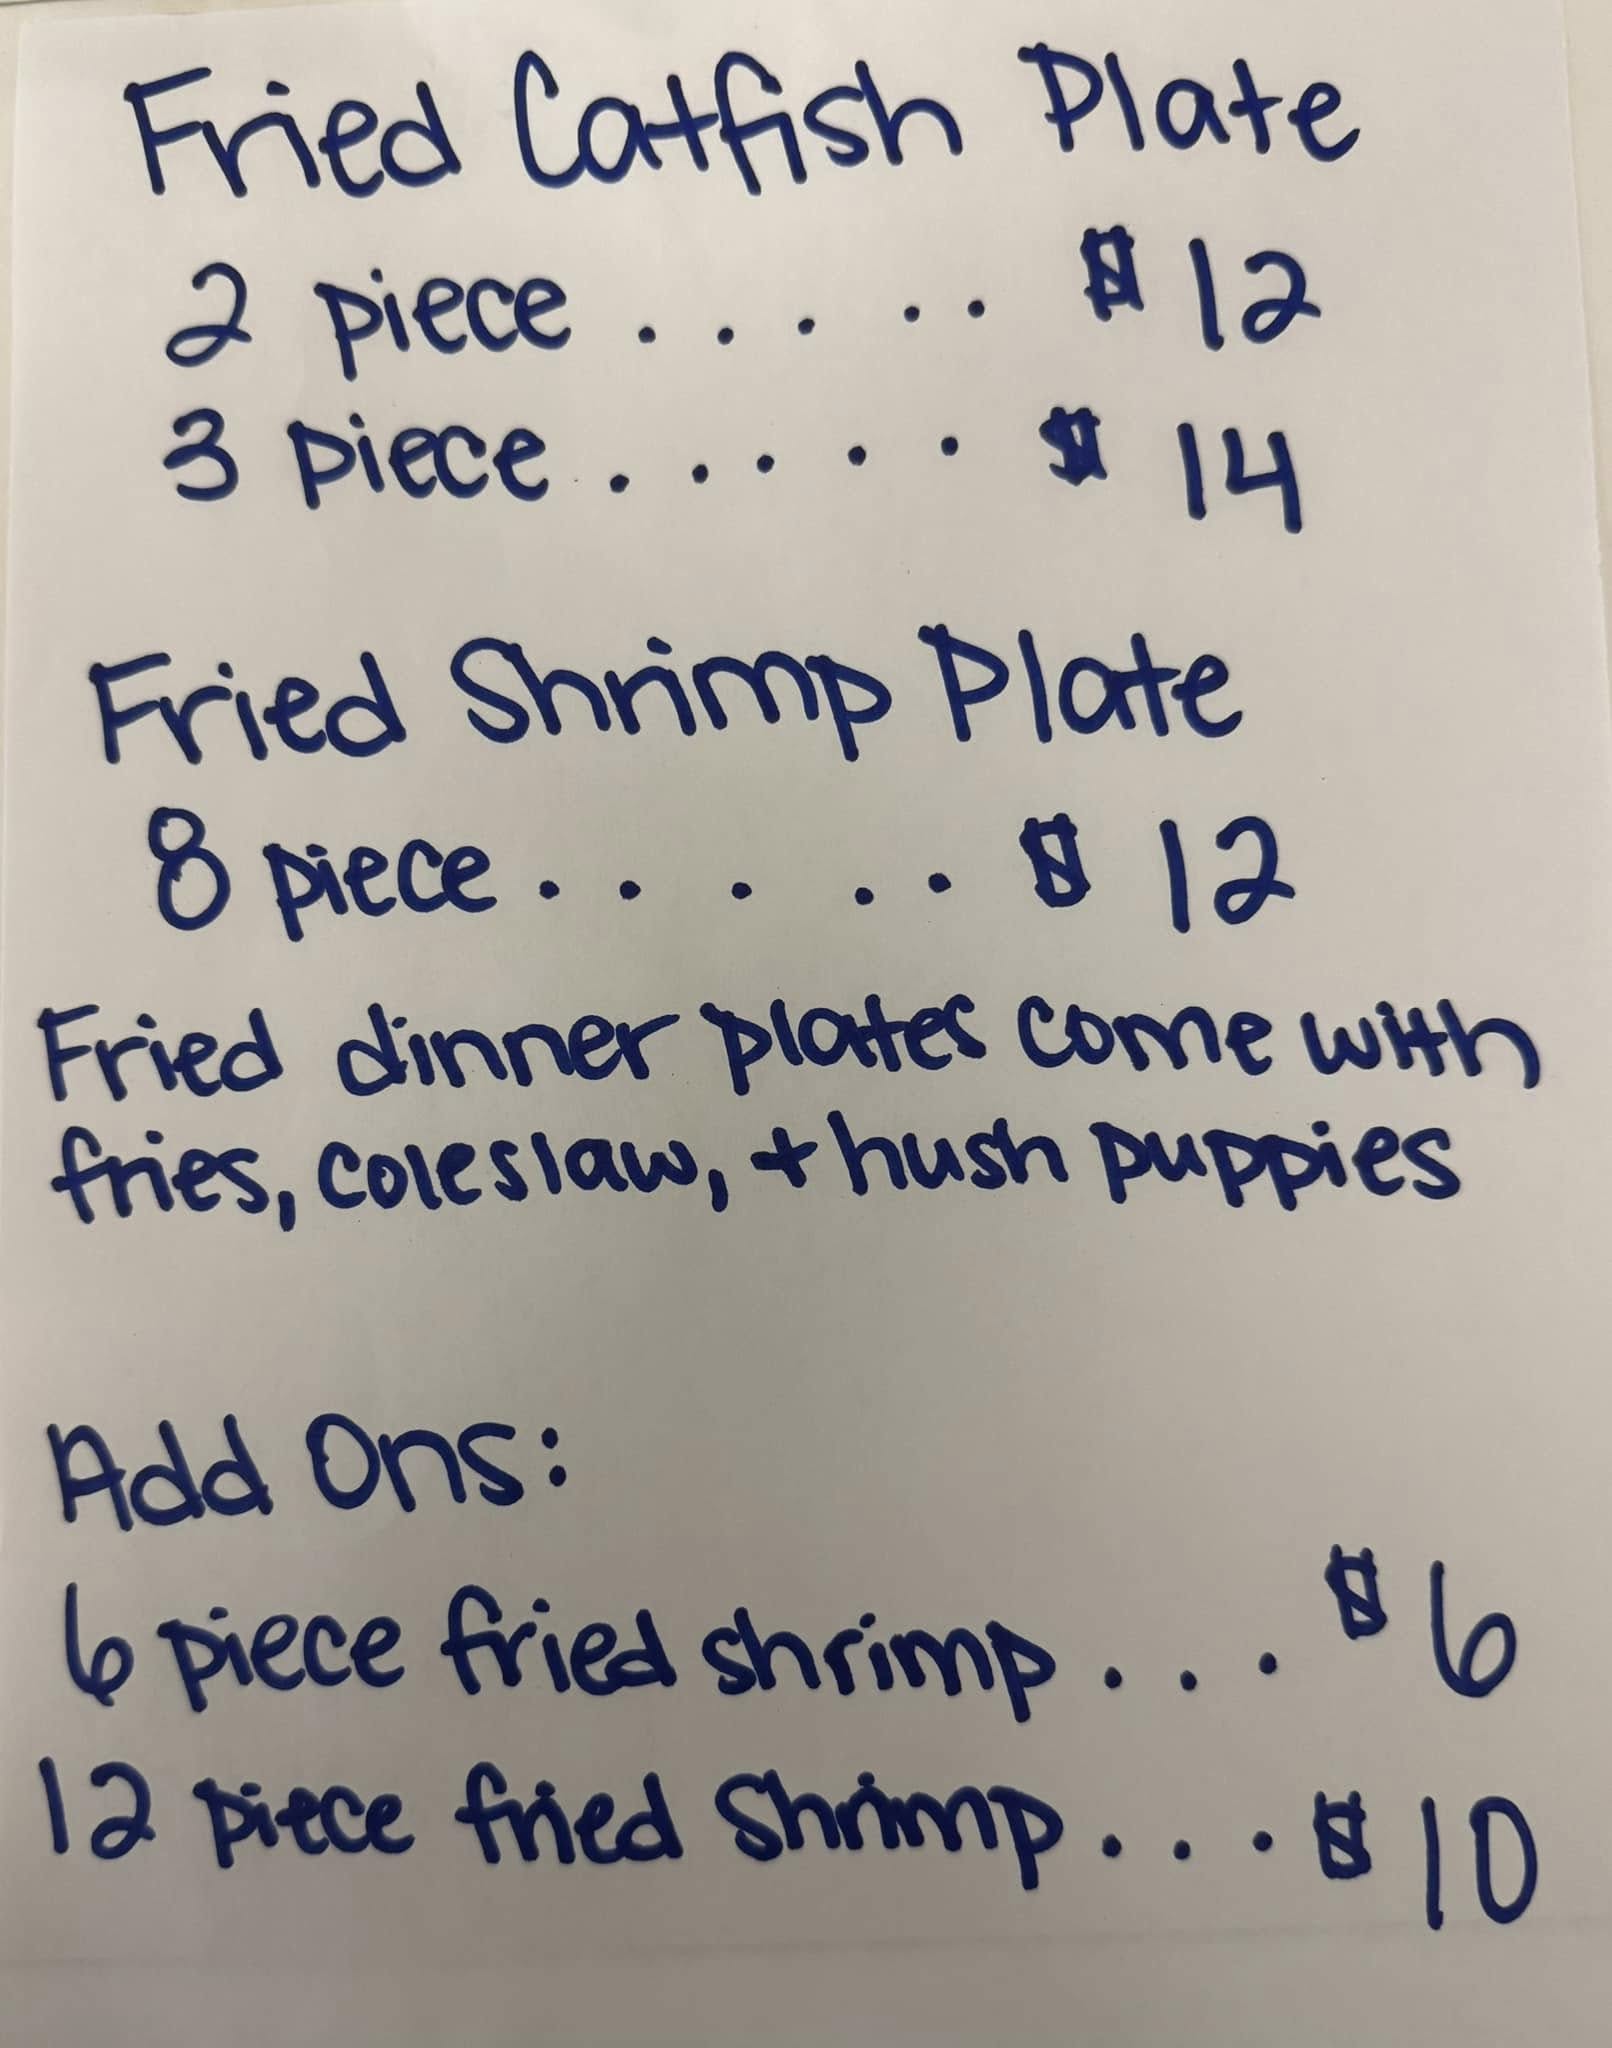 Fried Catfish Plate
2 piece ..... $12
3 piece ..... $14
Fried Shrimp Plate
8 piece ..... $12
Fried dinner plates come with
fries, coleslaw, + hush puppies
Add Ons:
6 piece fried shrimp ... $6
12 piece fried shrimp ... $10